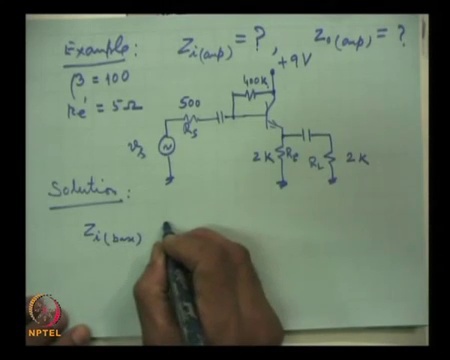 Example: Zi(amp) = ?, Zo(amp) = ?
β = 100
re' = 5Ω
+9V
400K
500
RS
vs
2K RE
RL 2K
Solution:
Zi(base)
NPTEL